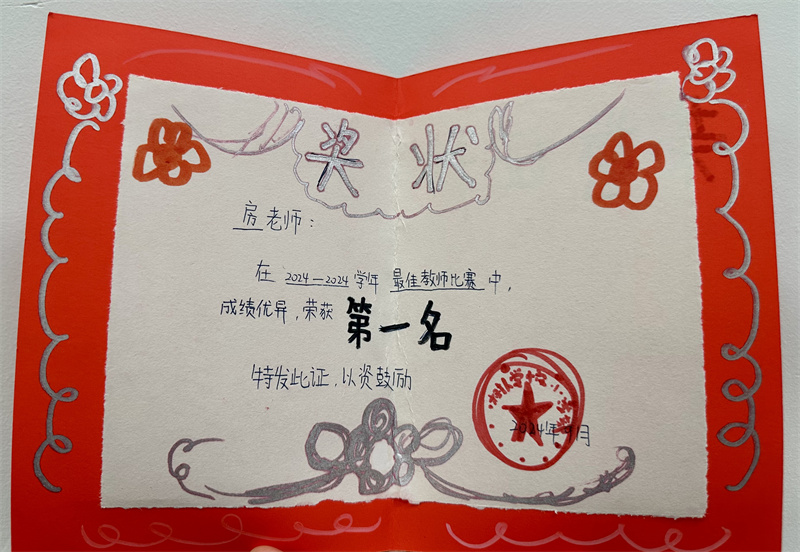 奖状
房老师：
在 2024—2024 学年 最佳教师比赛 中，
成绩优异，荣获 第一名
特发此证，以资鼓励
2024年9月